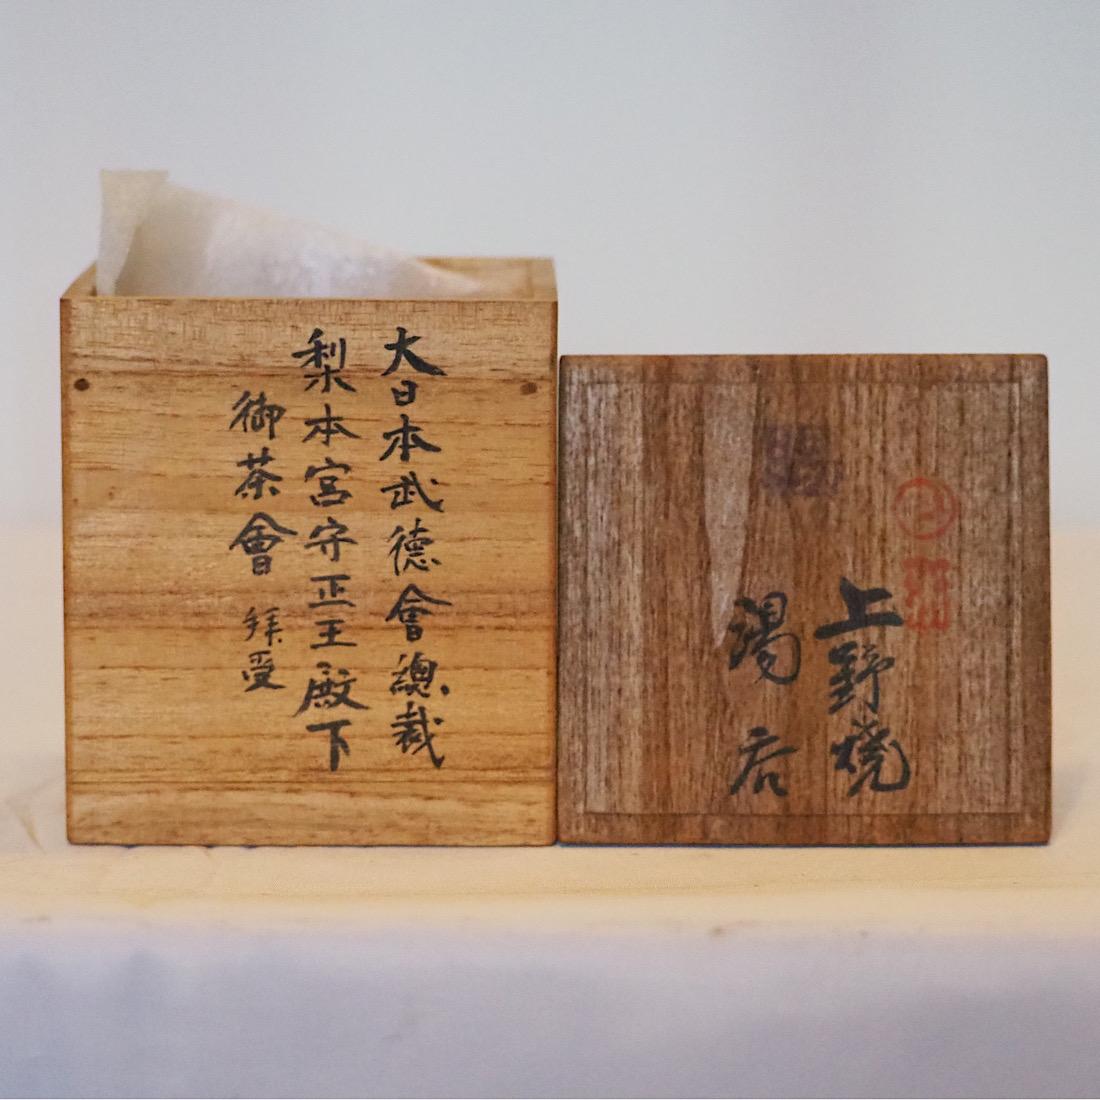 大日本武德會總裁
梨本宮守正王殿下
御茶會 拜受
上野燒
湯呑